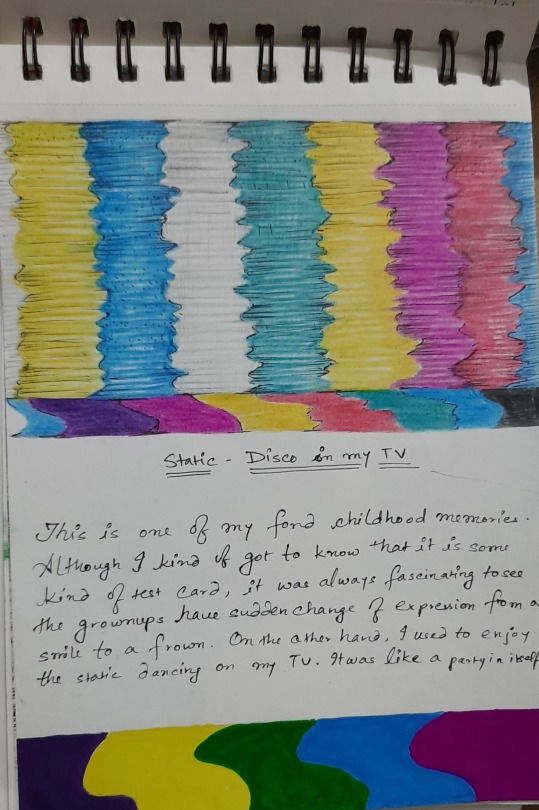 Static - Disco in my TV
This is one of my fond childhood memories.
Although I kind of got to know that it is some
kind of test card, it was always fascinating to see
the grownups have sudden change of expression from a
smile to a frown. On the other hand, I used to enjoy
the static dancing on my TV. It was like a party in itself